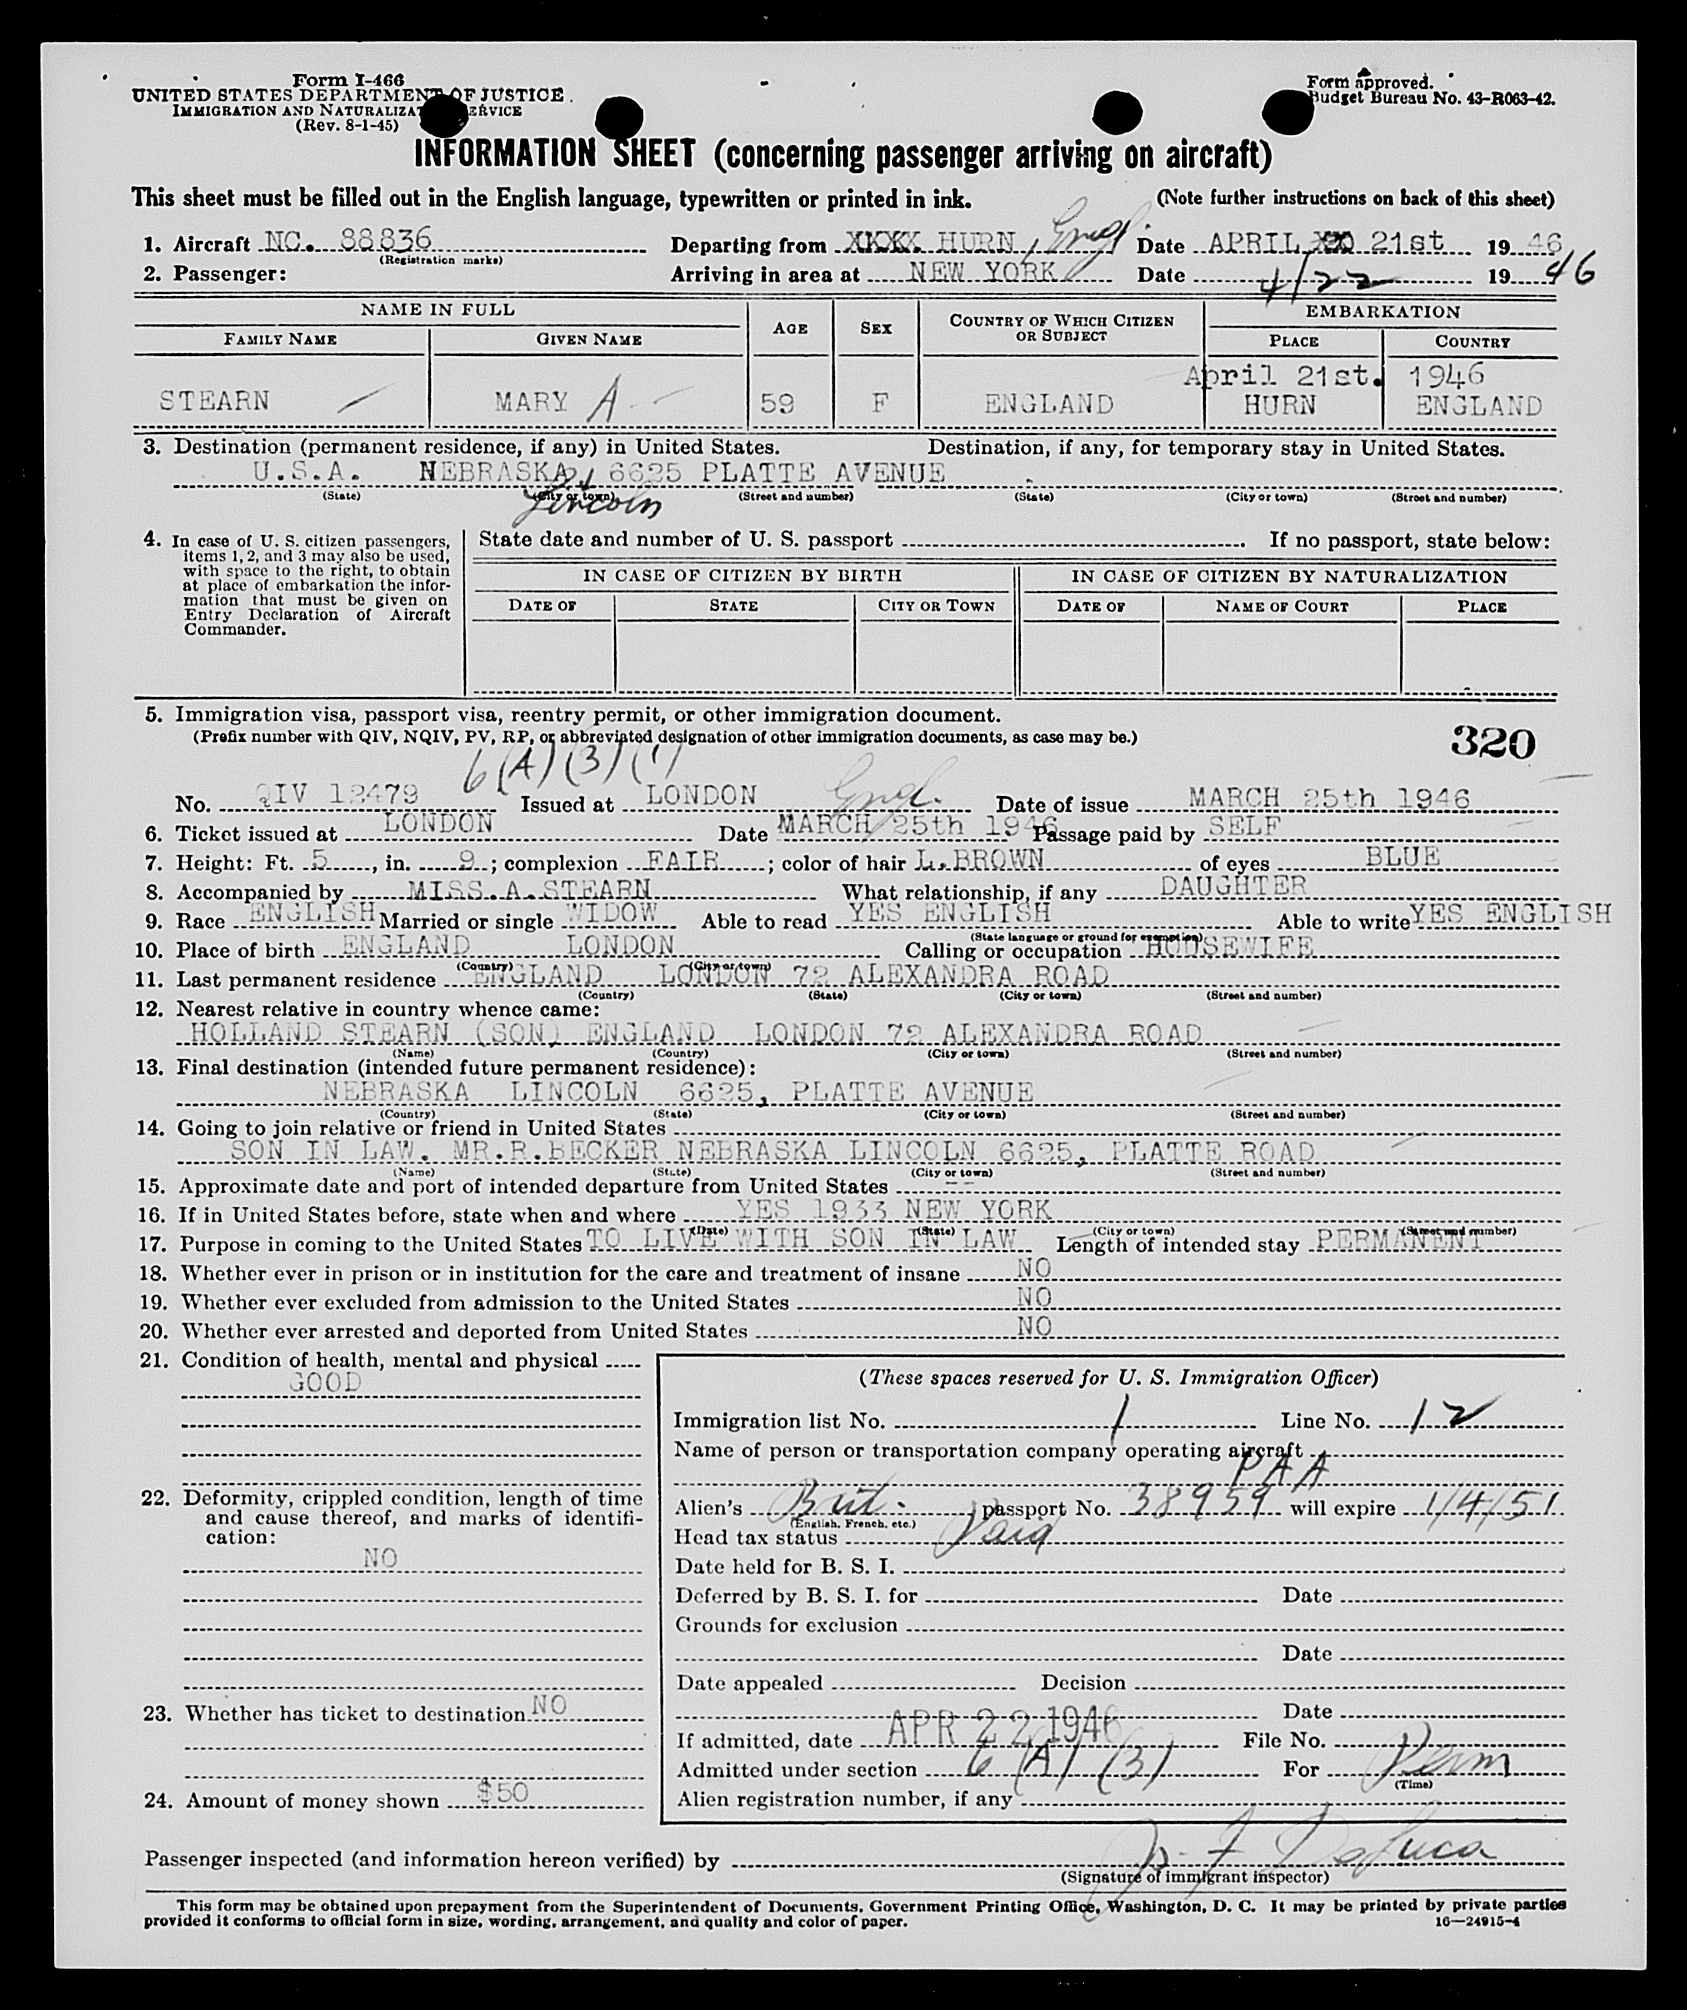 Form I-466
UNITED STATES DEPARTMENT OF JUSTICE
IMMIGRATION AND NATURALIZATION SERVICE
(Rev. 8-1-45)
Form approved.
Budget Bureau No. 43-R063-42.
INFORMATION SHEET (concerning passenger arriving on aircraft)
This sheet must be filled out in the English language, typewritten or printed in ink. (Note further instructions on back of this sheet)
1. Aircraft NC. 88836 Departing from XXXX HURN, Engl. Date APRIL XX 21st 19 46
(Registration marks)
2. Passenger: Arriving in area at NEW YORK Date 4/22 19 46
NAME IN FULL AGE SEX COUNTRY OF WHICH CITIZEN OR SUBJECT EMBARKATION
FAMILY NAME GIVEN NAME PLACE COUNTRY
April 21st. 1946
STEARN MARY A 59 F ENGLAND HURN ENGLAND
3. Destination (permanent residence, if any) in United States. Destination, if any, for temporary stay in United States.
U.S.A. NEBRASKA, 6625 PLATTE AVENUE
(State) (City or town) (Street and number) (State) (City or town) (Street and number)
Lincoln
4. In case of U. S. citizen passengers, items 1, 2, and 3 may also be used, with space to the right, to obtain at place of embarkation the information that must be given on Entry Declaration of Aircraft Commander.
State date and number of U. S. passport . If no passport, state below:
IN CASE OF CITIZEN BY BIRTH IN CASE OF CITIZEN BY NATURALIZATION
DATE OF STATE CITY OR TOWN DATE OF NAME OF COURT PLACE
5. Immigration visa, passport visa, reentry permit, or other immigration document.
(Prefix number with QIV, NQIV, PV, RP, or abbreviated designation of other immigration documents, as case may be.)
320
6(A)(3)(1)
No. QIV 12479 Issued at LONDON Engl. Date of issue MARCH 25th 1946
6. Ticket issued at LONDON Date MARCH 25th 1946 Passage paid by SELF
7. Height: Ft. 5, in. 9; complexion FAIR; color of hair L.BROWN of eyes BLUE
8. Accompanied by MISS.A.STEARN What relationship, if any DAUGHTER
9. Race ENGLISH Married or single WIDOW Able to read YES ENGLISH Able to write YES ENGLISH
(State language or ground for exemption)
10. Place of birth ENGLAND LONDON Calling or occupation HOUSEWIFE
(Country) (City or town)
11. Last permanent residence ENGLAND LONDON 72 ALEXANDRA ROAD
(Country) (State) (City or town) (Street and number)
12. Nearest relative in country whence came:
HOLLAND STEARN (SON) ENGLAND LONDON 72 ALEXANDRA ROAD
(Name) (Country) (City or town) (Street and number)
13. Final destination (intended future permanent residence):
NEBRASKA LINCOLN 6625, PLATTE AVENUE
(Country) (State) (City or town) (Street and number)
14. Going to join relative or friend in United States
SON IN LAW. MR.R.BECKER NEBRASKA LINCOLN 6625, PLATTE ROAD
(Name) (State) (City or town) (Street and number)
15. Approximate date and port of intended departure from United States --
16. If in United States before, state when and where YES 1933 NEW YORK
(Date) (State) (City or town) (Street and number)
17. Purpose in coming to the United States TO LIVE WITH SON IN LAW Length of intended stay PERMANENT
18. Whether ever in prison or in institution for the care and treatment of insane NO
19. Whether ever excluded from admission to the United States NO
20. Whether ever arrested and deported from United States NO
21. Condition of health, mental and physical
GOOD
22. Deformity, crippled condition, length of time and cause thereof, and marks of identification:
NO
23. Whether has ticket to destination NO
24. Amount of money shown $50
(These spaces reserved for U. S. Immigration Officer)
Immigration list No. 1 Line No. 12
Name of person or transportation company operating aircraft
PAA
Alien's Brit. passport No. 38959 will expire 1/4/51
(English, French, etc.)
Head tax status Paid
Date held for B. S. I.
Deferred by B. S. I. for Date
Grounds for exclusion
Date
Date appealed Decision
Date
If admitted, date APR 22 1946 File No.
Admitted under section 6(A)(3) For Perm
(Time)
Alien registration number, if any
Passenger inspected (and information hereon verified) by
(Signature of immigrant inspector)
This form may be obtained upon prepayment from the Superintendent of Documents, Government Printing Office, Washington, D. C. It may be printed by private parties
provided it conforms to official form in size, wording, arrangement, and quality and color of paper. 16—24915-4